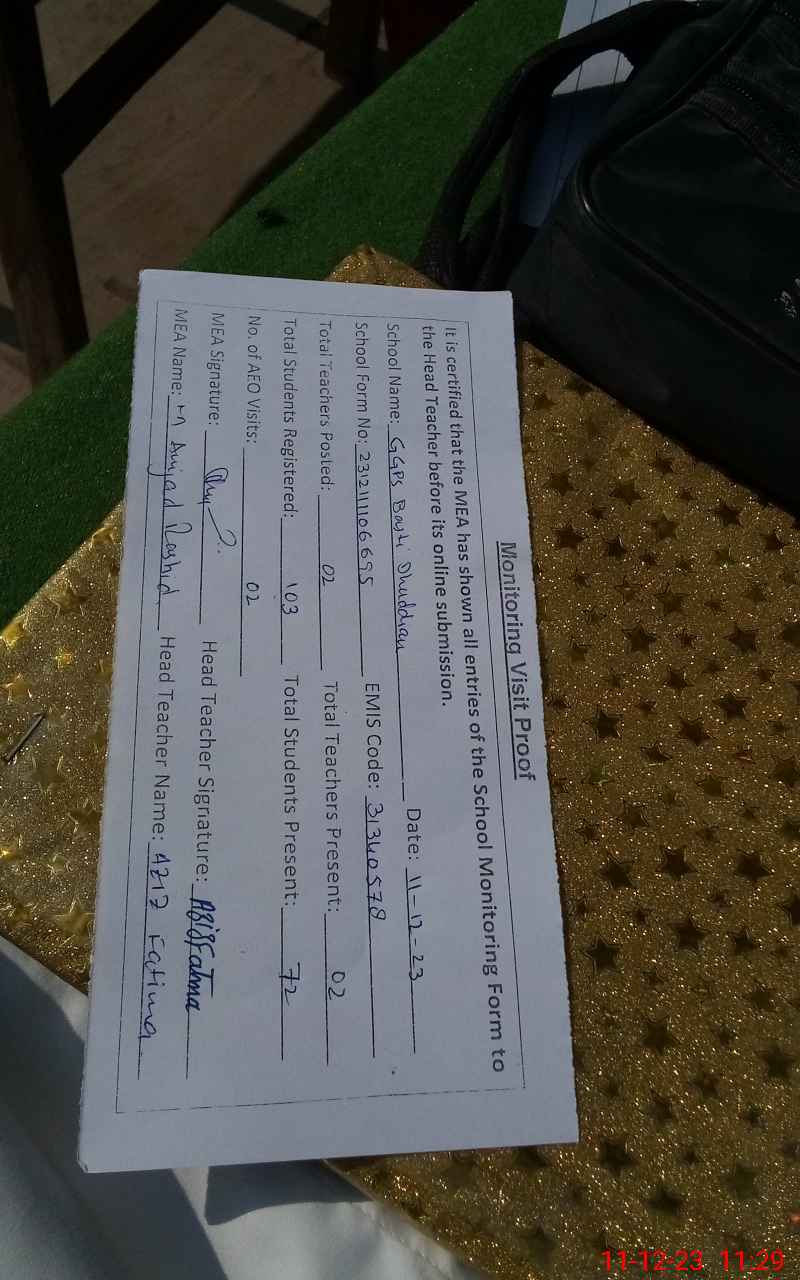 Monitoring Visit Proof
It is certified that the MEA has shown all entries of the School Monitoring Form to
the Head Teacher before its online submission.
School Name: GGPS Basti Dhuddian Date: 11-12-23
School Form No: 231211106695 EMIS Code: 31340578
Total Teachers Posted: 02 Total Teachers Present: 02
Total Students Registered: 103 Total Students Present: 72
No. of AEO Visits: 02
MEA Signature: Head Teacher Signature: Aziz Fatima
MEA Name: M Amjad Rashid Head Teacher Name: Aziz Fatima
11-12-23 11:29